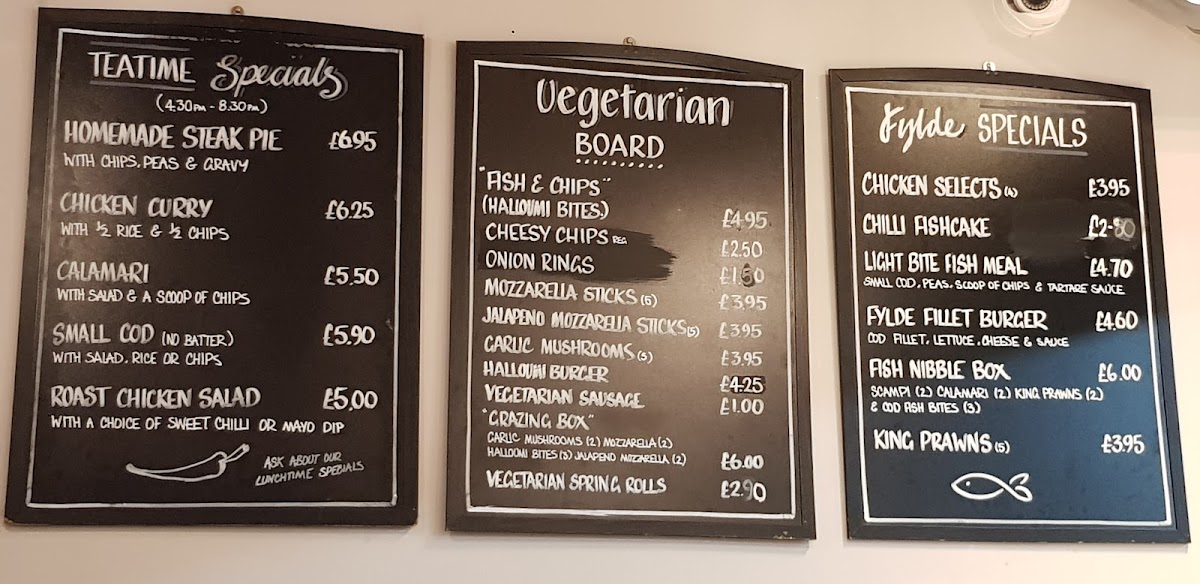 TEATIME Specials
(4.30PM - 8.30PM)
HOMEMADE STEAK PIE £6.95
WITH CHIPS, PEAS & GRAVY
CHICKEN CURRY £6.25
WITH ½ RICE & ½ CHIPS
CALAMARI £5.50
WITH SALAD & A SCOOP OF CHIPS
SMALL COD (NO BATTER) £5.90
WITH SALAD, RICE OR CHIPS
ROAST CHICKEN SALAD £5.00
WITH A CHOICE OF SWEET CHILLI OR MAYO DIP
ASK ABOUT OUR
LUNCHTIME SPECIALS
Vegetarian
BOARD
"FISH & CHIPS"
(HALLOUMI BITES) £4.95
CHEESY CHIPS REG £2.50
ONION RINGS £1.50
MOZZARELLA STICKS (5) £3.95
JALAPENO MOZZARELLA STICKS (5) £3.95
GARLIC MUSHROOMS (5) £3.95
HALLOUMI BURGER £4.25
VEGETARIAN SAUSAGE £1.00
"GRAZING BOX"
GARLIC MUSHROOMS (2) MOZZARELLA (2)
HALLOUMI BITES (3) JALAPENO MOZZARELLA (2) £6.00
VEGETARIAN SPRING ROLLS £2.90
Fylde SPECIALS
CHICKEN SELECTS (4) £3.95
CHILLI FISHCAKE £2-80
LIGHT BITE FISH MEAL £4.70
SMALL COD, PEAS, SCOOP OF CHIPS & TARTARE SAUCE
FYLDE FILLET BURGER £4.60
COD FILLET, LETTUCE, CHEESE & SAUCE
FISH NIBBLE BOX £6.00
SCAMPI (2) CALAMARI (2) KING PRAWNS (2)
& COD FISH BITES (3)
KING PRAWNS (5) £3.95